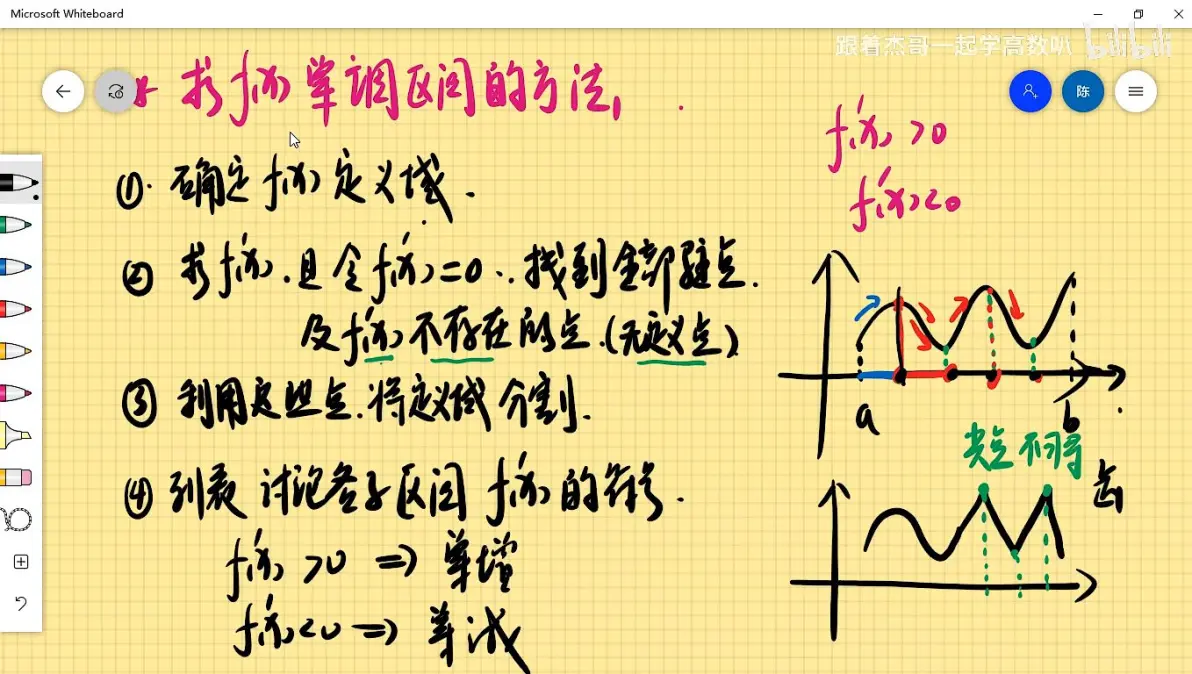 Microsoft Whiteboard
跟着杰哥一起学高数叭 bilibili
* 求f(x)单调区间的方法,
陈
f'(x)>0
f'(x)<0
①. 确定f(x)定义域.
② 求f'(x).且令f'(x)=0..找到全部驻点.
及f'(x)不存在的点.(无定义点)
③ 利用这些点.将定义域分割.
④ 列表讨论各子区间f'(x)的符号.
f'(x)>0 => 单增
f'(x)<0 => 单减
a
b
尖点不可导